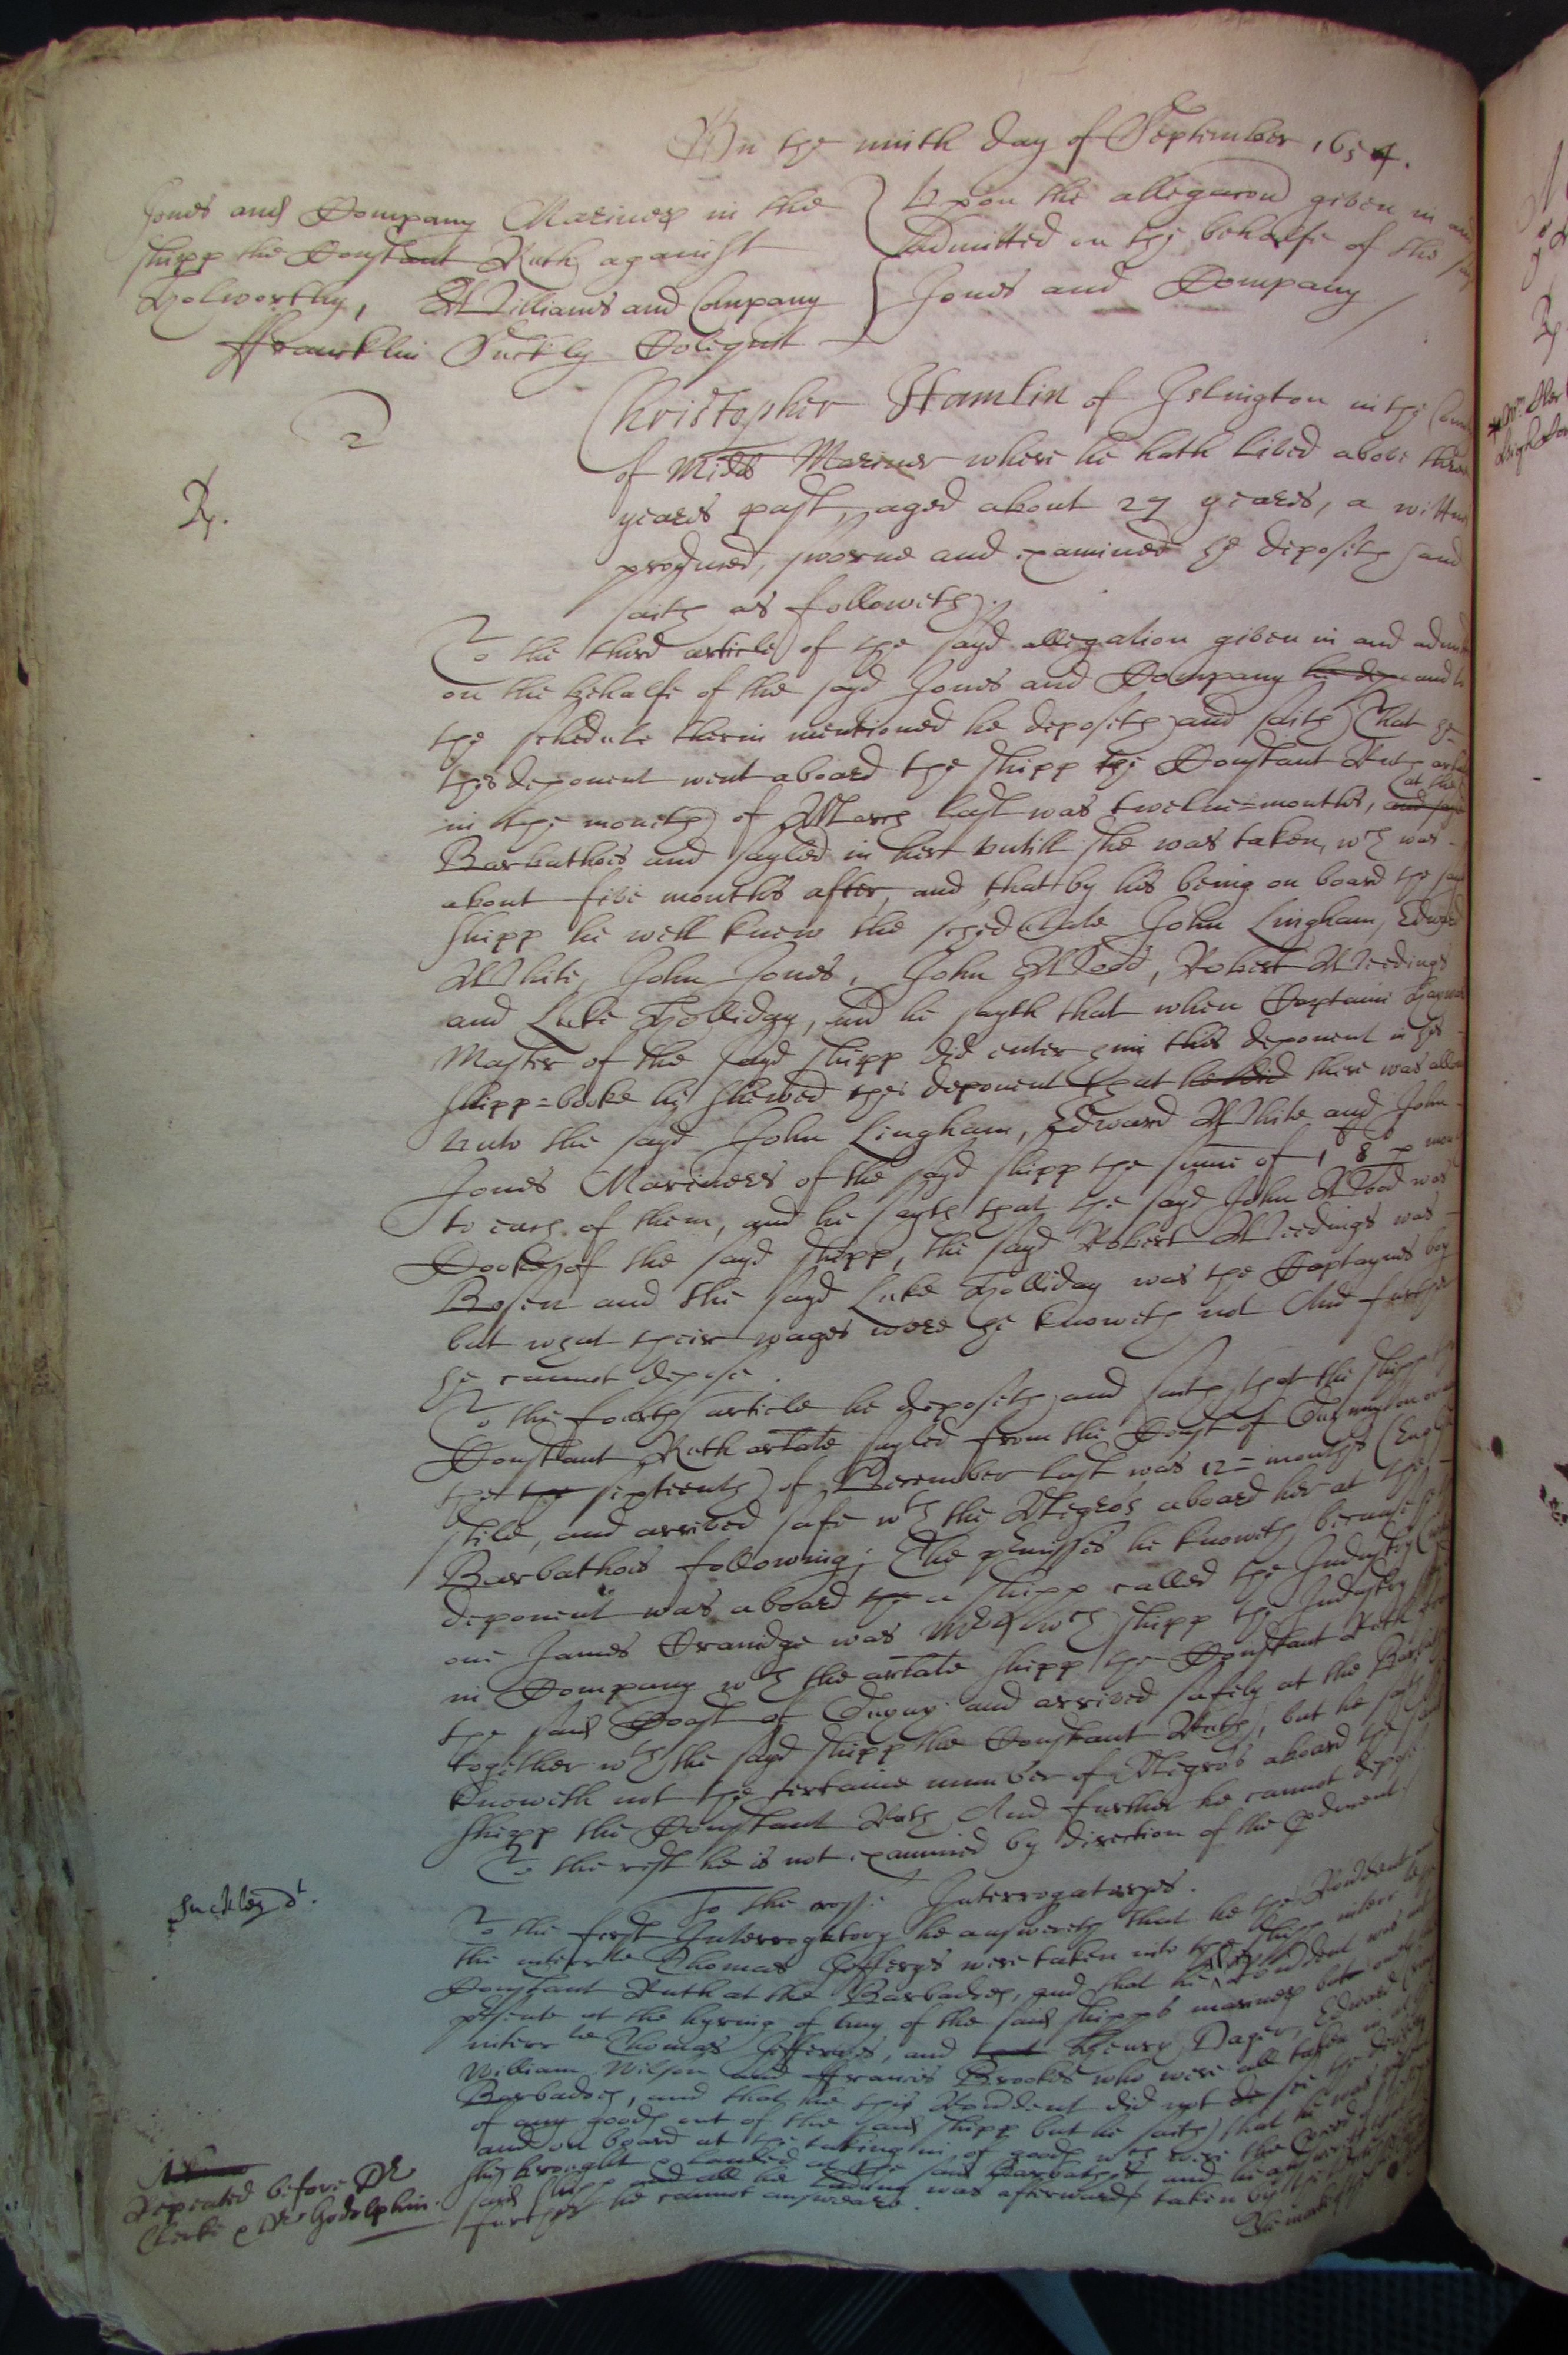 On the ninth day of September 1654.
Jones and Company Mariners in the
shipp the Constant Ruth against
Holworthy, Williams and Company
ffrancklin Suckly Colequit
Upon the allegacon given in and
admitted on the behalfe of the sayd
Jones and Company
2
Rp.
Christopher Hamlin of Islington in the County
of Midd Mariner where he hath lived above three
yeares past, aged about 27 yeares, a wittnes
produced, sworne and examined he deposeth and
saith as followeth.
To the third article of the sayd allegation given in and admitted
on the behalfe of the sayd Jones and Company he dep and to
the schedule therin mentioned he deposeth and saith That he
this deponent went aboard the shipp the Constant Ruth arlate
in the moneth of March last was twelve=months, and saye at the
Barbathoes and sayled in her untill she was taken, wch was
about five months after, and that by his being on board the sayd
shipp he well knew the schedulate John Lingham, Edward
White, John Jones, John Wood, Robert Weedings
and Luke Holliday, and he sayth that when Captaine
Master of the sayd shipp did enter him this deponent in his
shipp=booke he shewed this deponent that he did there was allowed
unto the sayd John Lingham, Edward White and John
Jones Mariners of the sayd shipp the sume of 1li 8s p moneth
to each of them, and he sayth that the sayd John Wood was
Cooke of the sayd shipp, the sayd Robert Weedings was
Bosen and the sayd Luke Holliday was the Captaynes boy
but what their wages were he knoweth not And further
he cannot depose.
To the fourth article he deposeth and saith that the shipp the
Constant Ruth arlate sayled from the Coast of
the the sixteenth of December last was 12=months (English
stile, and arrived safe wth the Negros aboard her at the
Barbathoes following; The pmisses he knoweth because
deponent was aboard the a shipp called the Industry
one James Cranidge was Mr wch shipp the Industry
in Company wth the arlate shipp the Constant Ruth from
the said Coast of and arrived safely at the Barbathoes
together wth the sayd shipp the Constant Ruth, but he sayth he
knoweth not the certaine number of Negro's aboard the said
shipp the Constant Ruth And further he cannot depose
To the rest he is not examined by direction of the producent
To the crosse Interrogatoryes.
Suckley dt.
To the first Interrogatory he answereth that he the Rondent and
the interrte Thomas Jefferyes were taken into the shipp interr te the
Constant Ruth at the Barbadoes, and that he this rondent was not
psente at the hyring of any of the said shipps mariners but onely the
interr te Thomas Jefferyes, and Henry Dager, Edward
William Wilson and ffrancis Brookes who were all taken in at the
Barbadoes, and that he this Rondent did not see the delivery
of any goods out of the said shipp but he saith that he was
and on board at the taking in of goods wch were the
she brought & landed at the said Barbathoes and he
said shipp and all her Lading was afterwards taken by the
further he cannot answeare.
The marke of the
Repeated before Dr
Clerke & Dr Godolphin.